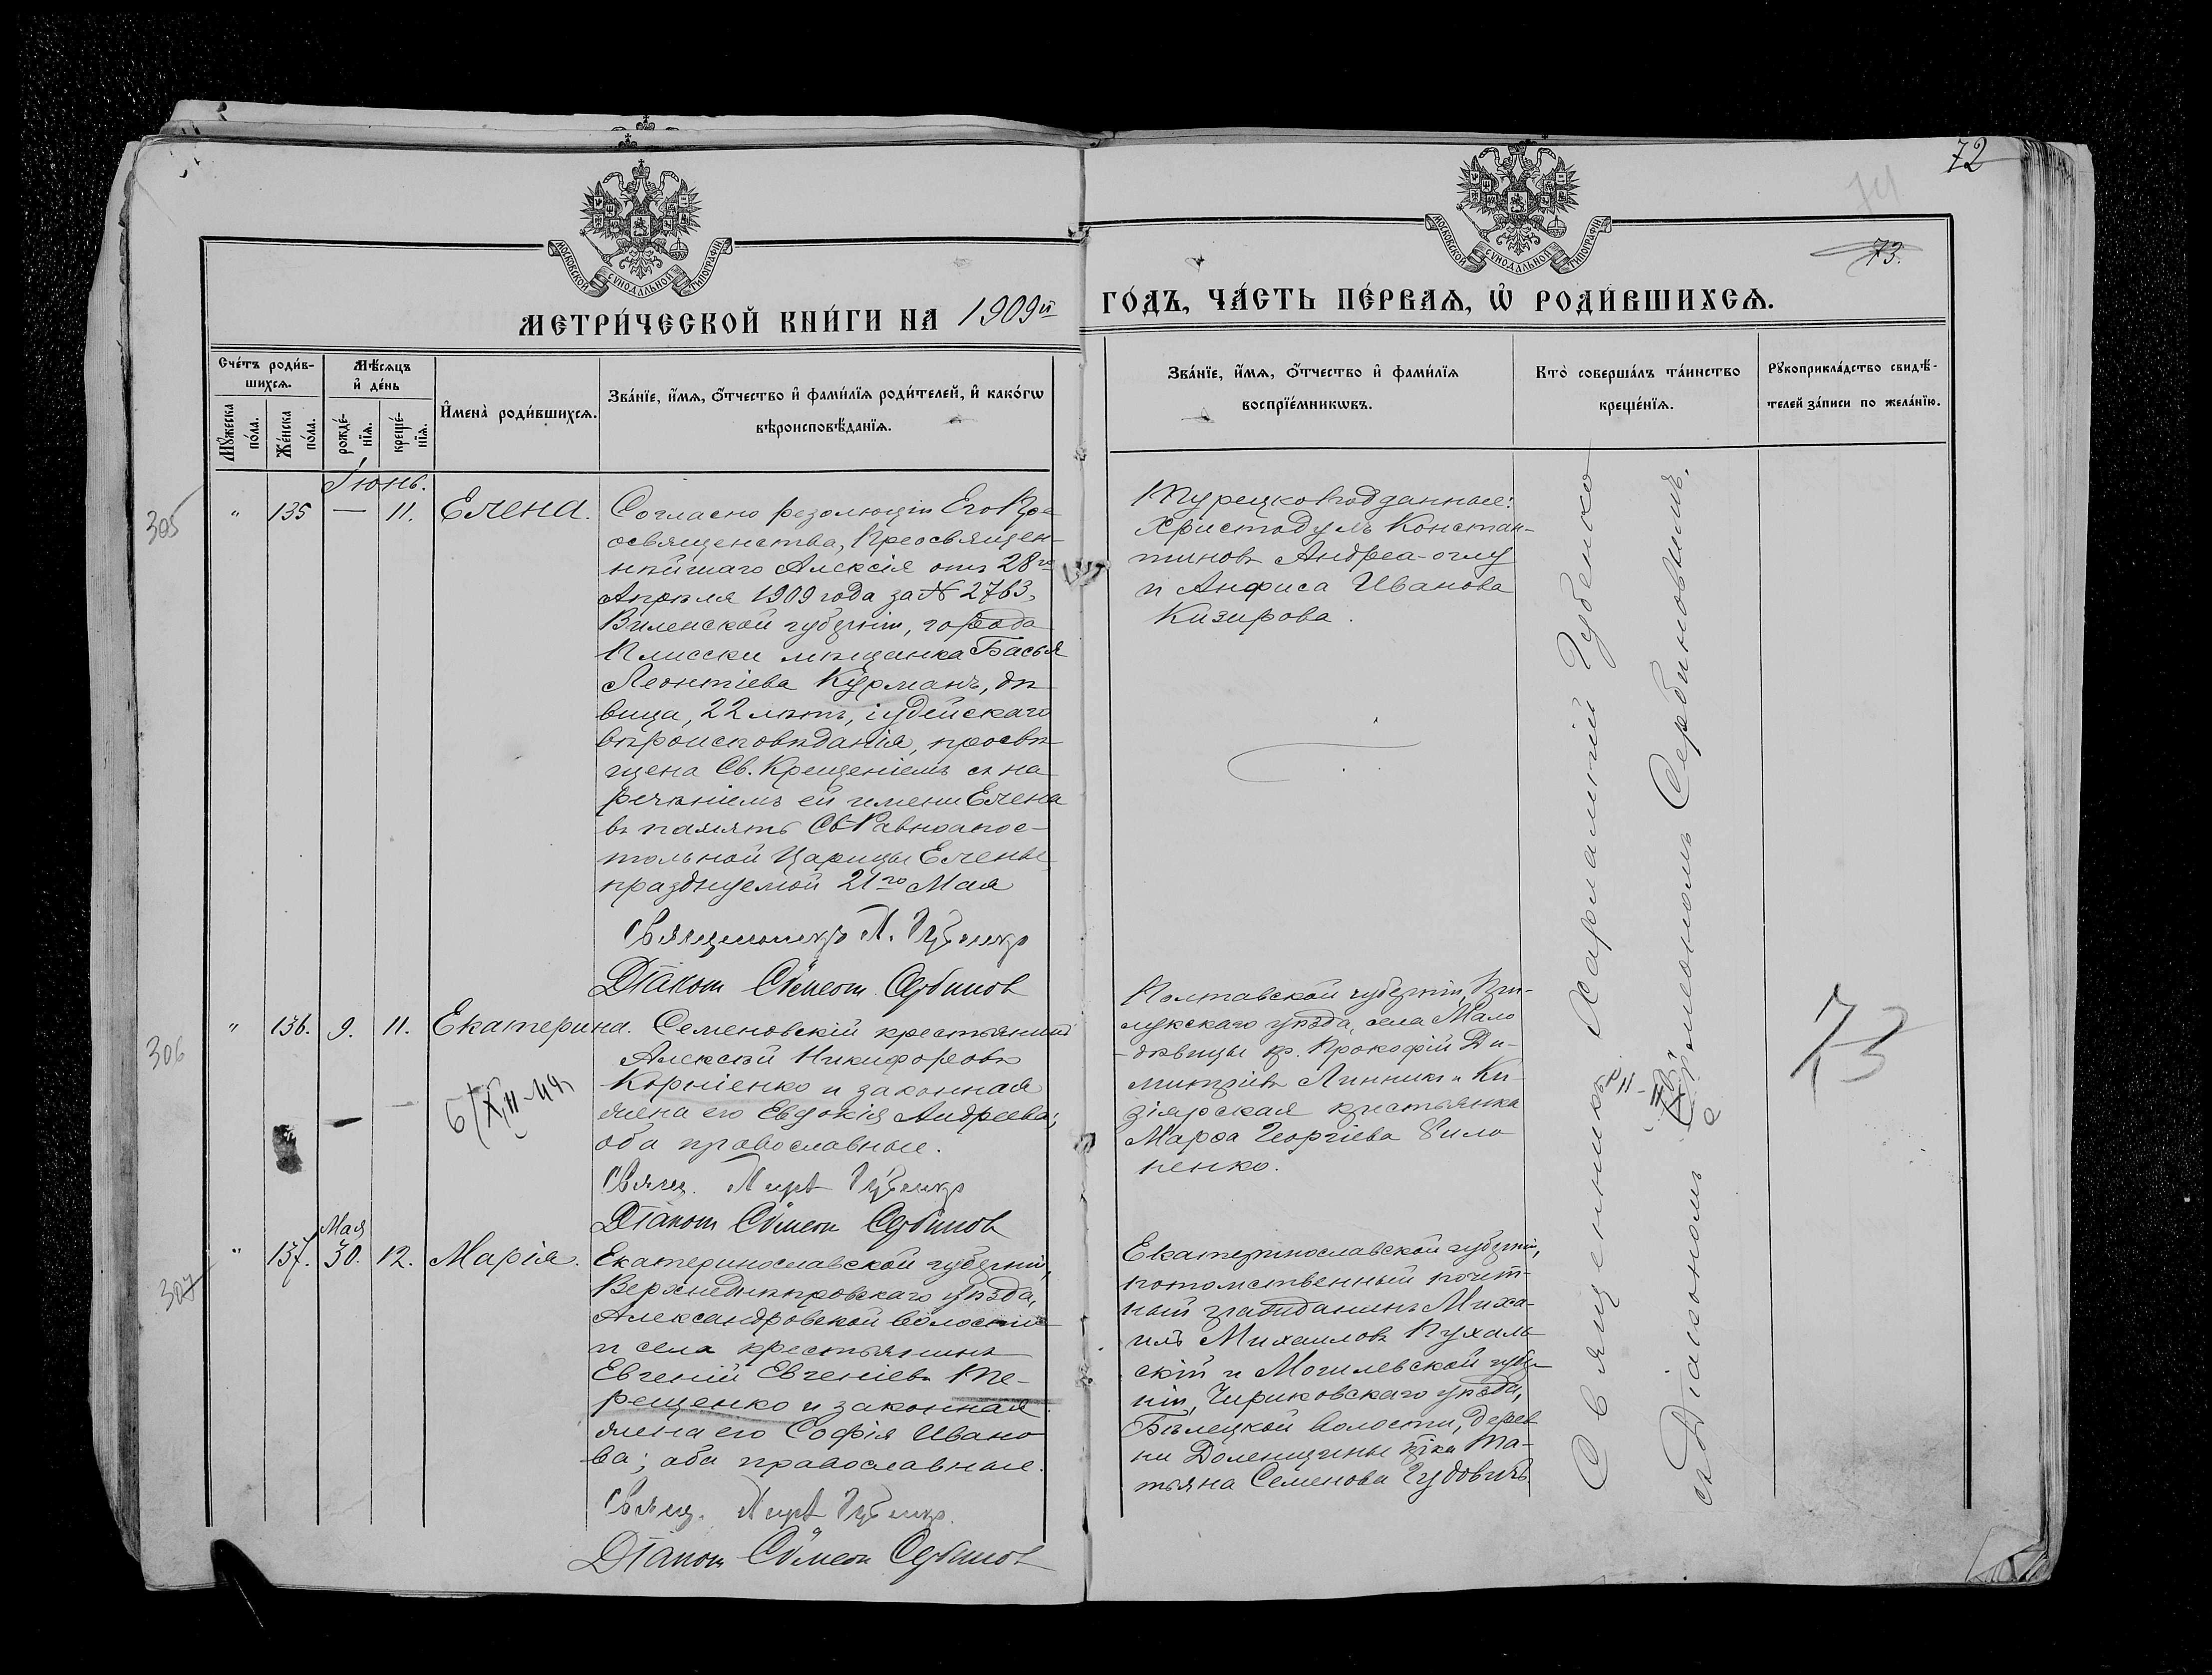 72
73.
МОСКОВСКОЙ СУНОДАЛЬНОЙ ТИПОГРАФІИ
МОСКОВСКОЙ СУНОДАЛЬНОЙ ТИПОГРАФІИ
МЕТРИ́ЧЕСКОЙ КНИ́ГИ НА 1909й ГО́ДЪ, ЧА́СТЬ ПЕ́РВАѦ, Ѡ҆ РОДИ́ВШИХСѦ.
Сче́тъ роди́в-
шихсѧ.
Мꙋ́жеска по́ла.
Же́нска по́ла.
Мѣ́сѧцъ
и҆ де́нь
рожде́-
нїѧ.
креще́-
нїѧ.
И҆мена̀ роди́вшихсѧ.
Зва́нїе, и҆́мѧ, ѻ҆́тчество и҆ фами́лїѧ роди́телей, и҆ како́гѡ
вѣроисповѣ́данїѧ.
Зва́нїе, и҆́мѧ, ѻ҆́тчество и҆ фами́лїѧ
воспрїе́мникѡвъ.
Кто̀ соверша́лъ та́инство
креще́нїѧ.
Рꙋкоприкла́дство свидѣ́-
телей за́писи по жела́нїю.
Іюнь.
305 " 135 — 11. Елена.
Согласно резолюціи Его Прео
освященства, Преосвящен-
нѣйшаго Алексія отъ 28го
Апрѣля 1909 года за № 2763,
Виленской губерніи, города
Плисски мѣщанка Басья
Леонтіева Курманъ, дѣ
вица, 22 лѣтъ, іудейскаго
вѣроисповѣданія, просвѣ
щена Св. Крещеніемъ съ на
реченіемъ ей имени Елена
въ память Св. Равноапос-
тольной Царицы Елены
празднуемой 21го Мая
Священникъ Х. Губенко
Діаконъ Сѵмеонъ Сербиновъ
Турецкоподданные:
Христодулъ Констан-
тиновъ Андреа-оглу
и Анфиса Иванова
Кизирова.
306 " 136. 9. 11. Екатерина.
Семеновскій крестьянинъ
Алексѣй Никифоровъ
Корніенко и законная
жена его Евдокія Андреева;
оба православные.
Свящ. Хар. Губенко
Діаконъ Сѵмеонъ Сербиновъ
Полтавской губерніи, При-
лукскаго уѣзда, села Мало
-дѣвицы кр. Прокофій Ди-
митріевъ Линникъ и Ки-
зіярская крестьянка
Марѳа Георгіева Фило
ненко.
73
Мая
307 " 137. 30. 12. Марія.
Екатеринославской губерніи,
Верхнеднѣпровскаго уѣзда,
Александровской волости
и села крестьянинъ
Евгеній Евгеніевъ Те-
рещенко и законная
жена его Софія Ивано
ва; оба православные.
Свящ. Хар. Губенко.
Діаконъ Сѵмеонъ Сербиновъ
Екатеринославской губерніи,
потомственный почет-
ный гражданинъ Миха-
илъ Михаиловъ Пухаль
скій и Могилевской губер
ніи, Чириковскаго уѣзда,
Бѣлецкой волости, дерев
ни Доленщины кр-ка Та-
тьяна Семенова Гудовичъ
Священникъ Харлампій Губенко
съ Діакономъ Сѵмеономъ Сербиновымъ.